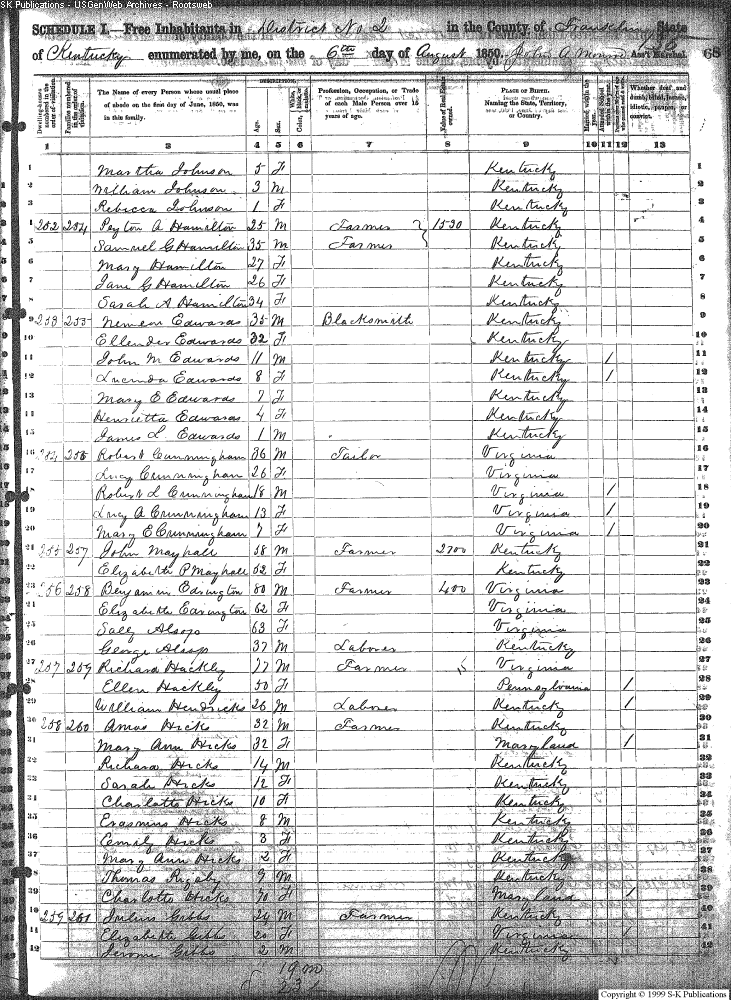 SK Publications - USGenWeb Archives - Rootsweb
SCHEDULE I.—Free Inhabitants in District No 2 in the County of Franklin State
of Kentucky enumerated by me, on the 6th day of August 1850. John A Ass't Marshal. 68
DESCRIPTION.
Dwelling-houses numbered in the order of visitation. Families numbered in the order of visitation. The Name of every Person whose usual place of abode on the first day of June, 1850, was in this family. Age. Sex. White, black, Color, Profession, Occupation, or Trade of each Male Person over 15 years of age. Value of Real Estate owned. PLACE OF BIRTH. Naming the State, Territory, or Country. Married within the year. Attended School within the year. Whether deaf and dumb, blind, insane, idiotic, pauper, or convict.
1 2 3 4 5 6 7 8 9 10 11 12 13
1 Martha Johnson 5 F Kentucky 1
2 William Johnson 3 M Kentucky 2
3 Rebecca Johnson 1 F Kentucky 3
4 252 254 Peyton A Hamilton 25 M Farmer } 1530 Kentucky 4
5 Samuel G Hamilton 35 M Farmer Kentucky 5
6 Mary Hamilton 27 F Kentucky 6
7 Jane G Hamilton 26 F Kentucky 7
8 Sarah A Hamilton 34 F Kentucky 8
9 253 255 Edwards 35 M Blacksmith Kentucky 9
10 Ellender Edwards 32 F Kentucky 10
11 John M Edwards 11 M Kentucky / 11
12 Lucinda Edwards 8 F Kentucky / 12
13 Mary E Edwards 7 F Kentucky 13
14 Henrietta Edwards 4 F Kentucky 14
15 James L. Edwards 1 M Kentucky 15
16 254 256 Robert Cunningham 36 M Tailor Virginia 16
17 Lucy Cunningham 26 F Virginia 17
18 Robert L Cunningham 18 M Virginia / 18
19 Lucy A Cunningham 13 F Virginia / 19
20 Mary E Cunningham 7 F Virginia / 20
21 255 257 John Mayhall 58 M Farmer 2700 Kentucky 21
22 Elizabeth P Mayhall 52 F Kentucky 22
23 256 258 Benjamin Edrington 80 M Farmer 400 Virginia 23
24 Elizabeth Edrington 62 F Virginia 24
25 Sally Alsop 63 F Virginia 25
26 George Alsop 37 M Laborer Kentucky 26
27 257 259 Richard Hackley 77 M Farmer Virginia 27
28 Ellen Hackley 50 F Pennsylvania / 28
29 William Hendricks 26 M Laborer Kentucky / 29
30 258 260 Amos Hicks 32 M Farmer Kentucky 30
31 Mary Ann Hicks 32 F Maryland / 31
32 Richard Hicks 14 M Kentucky 32
33 Sarah Hicks 12 F Kentucky 33
34 Charlotte Hicks 10 F Kentucky 34
35 Erasmus Hicks 8 M Kentucky 35
36 Emily Hicks 3 F Kentucky 36
37 Mary Ann Hicks 2 F Kentucky 37
38 Thomas Rigsby 9 M Kentucky 38
39 Charlotte Hicks 70 F Maryland / 39
40 259 261 Julius Gibbs 24 M Farmer Kentucky 40
41 Elizabeth Gibbs 20 F Virginia / 41
42 Jerome Gibbs 2 M Kentucky 42
19 m
23 f
Copyright © 1999 S-K Publications